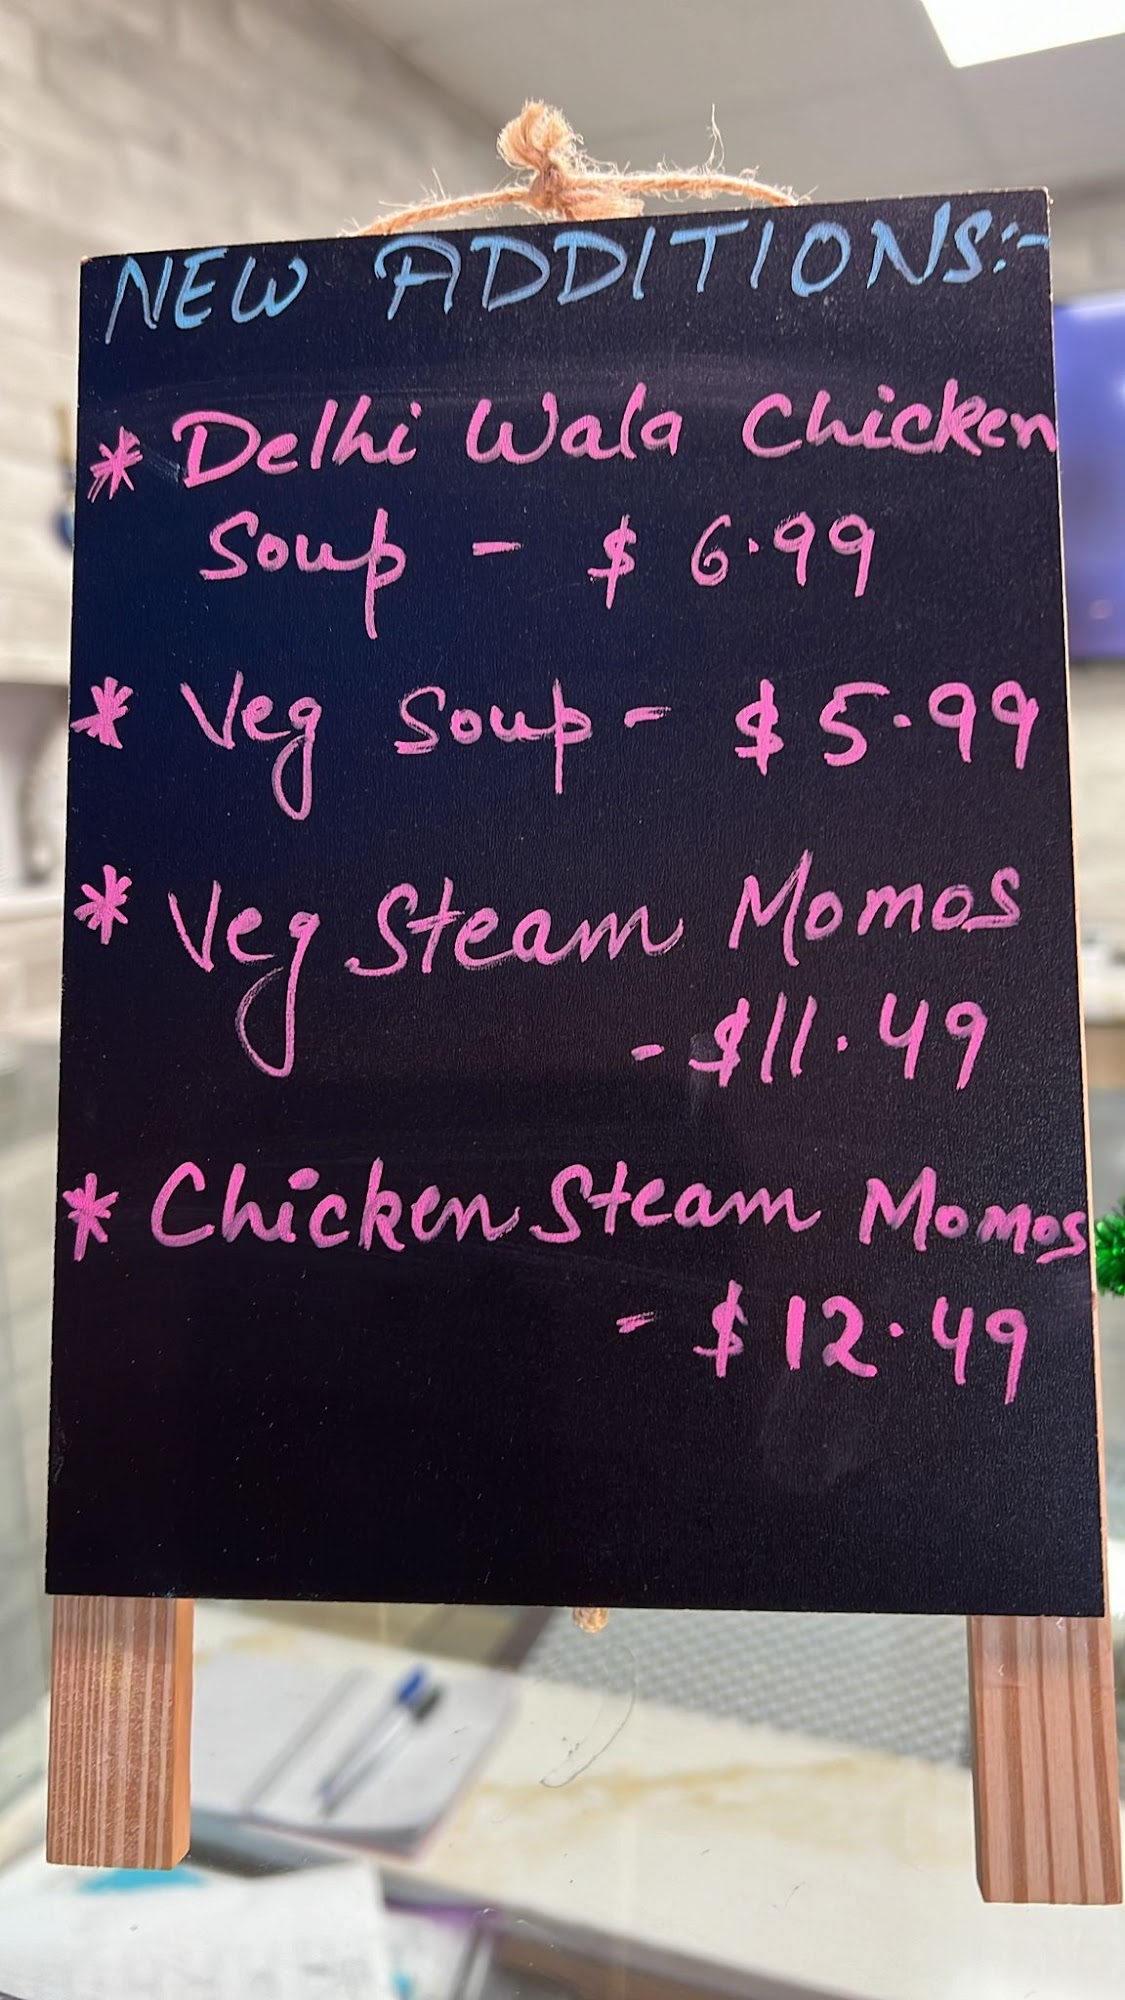 NEW ADDITIONS:-
* Delhi Wala Chicken
Soup - $ 6.99
* Veg Soup - $5.99
* Veg Steam Momos
- $11.49
* Chicken Steam Momos
- $12.49